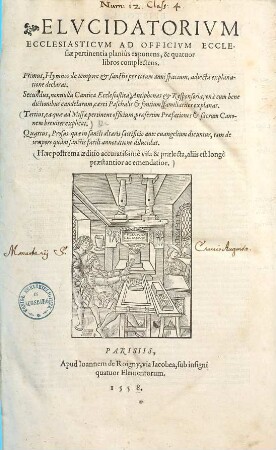 Num: 12. Class: 4.
ELVCIDATORIVM
ECCLESIASTICVM AD OFFICIVM ECCLE-
siæ pertinentia planiùs exponens, & quatuor
libros complectens.
Primus, Hymnos de tempore & sanctis per totum anni spacium, adiecta explana-
tione declarat.
Secundus, nonnulla Cantica Ecclesiastica, Antiphonas & Responsoria, vnà cum bene
dictionibus candelarum, cerei Paschalis & fontium, familiariter explanat.
Tertius, ea quæ ad Missæ pertinent officium, præsertim Præfationes & sacrum Cano-
nem breuiter explicat.
Quartus, Prosas quæ in sancti altaris sacrificio ante euangelium dicuntur, tam de
tempore quàm sanctis facili annotatione dilucidat.
(Hæc postrema æditio accuratissimè visa & prælecta, aliis est longè
præstantior ac emendatior.)
Monasterij S. Crucis Augustæ.
PARISIIS,
Apud Ioannem de Roigny, via Iacobea, sub insigni
quatuor Elementorum.
1558.